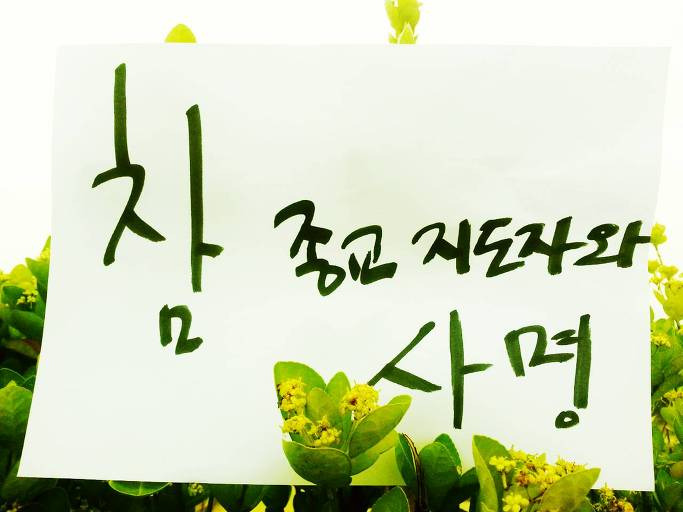 참 종교 지도자와
사명